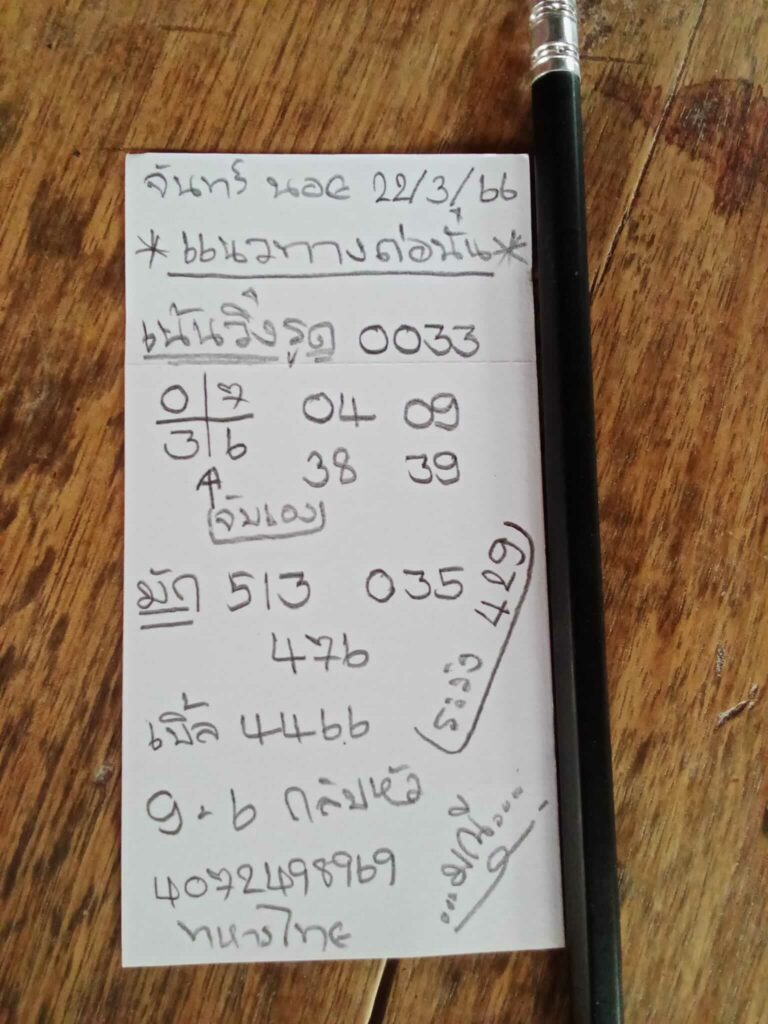 จันทร์ นอย 22/3/66
*แนวทางต่อนั้น*
เน้นวิ่งรูด 0033
0 7 04 09
3 6 38 39
จับเอง
มัด 513 035
476
ระวัง 429
เบิ้ล 4466
9-6 กลับหัว
4072498969
ทหารไทย